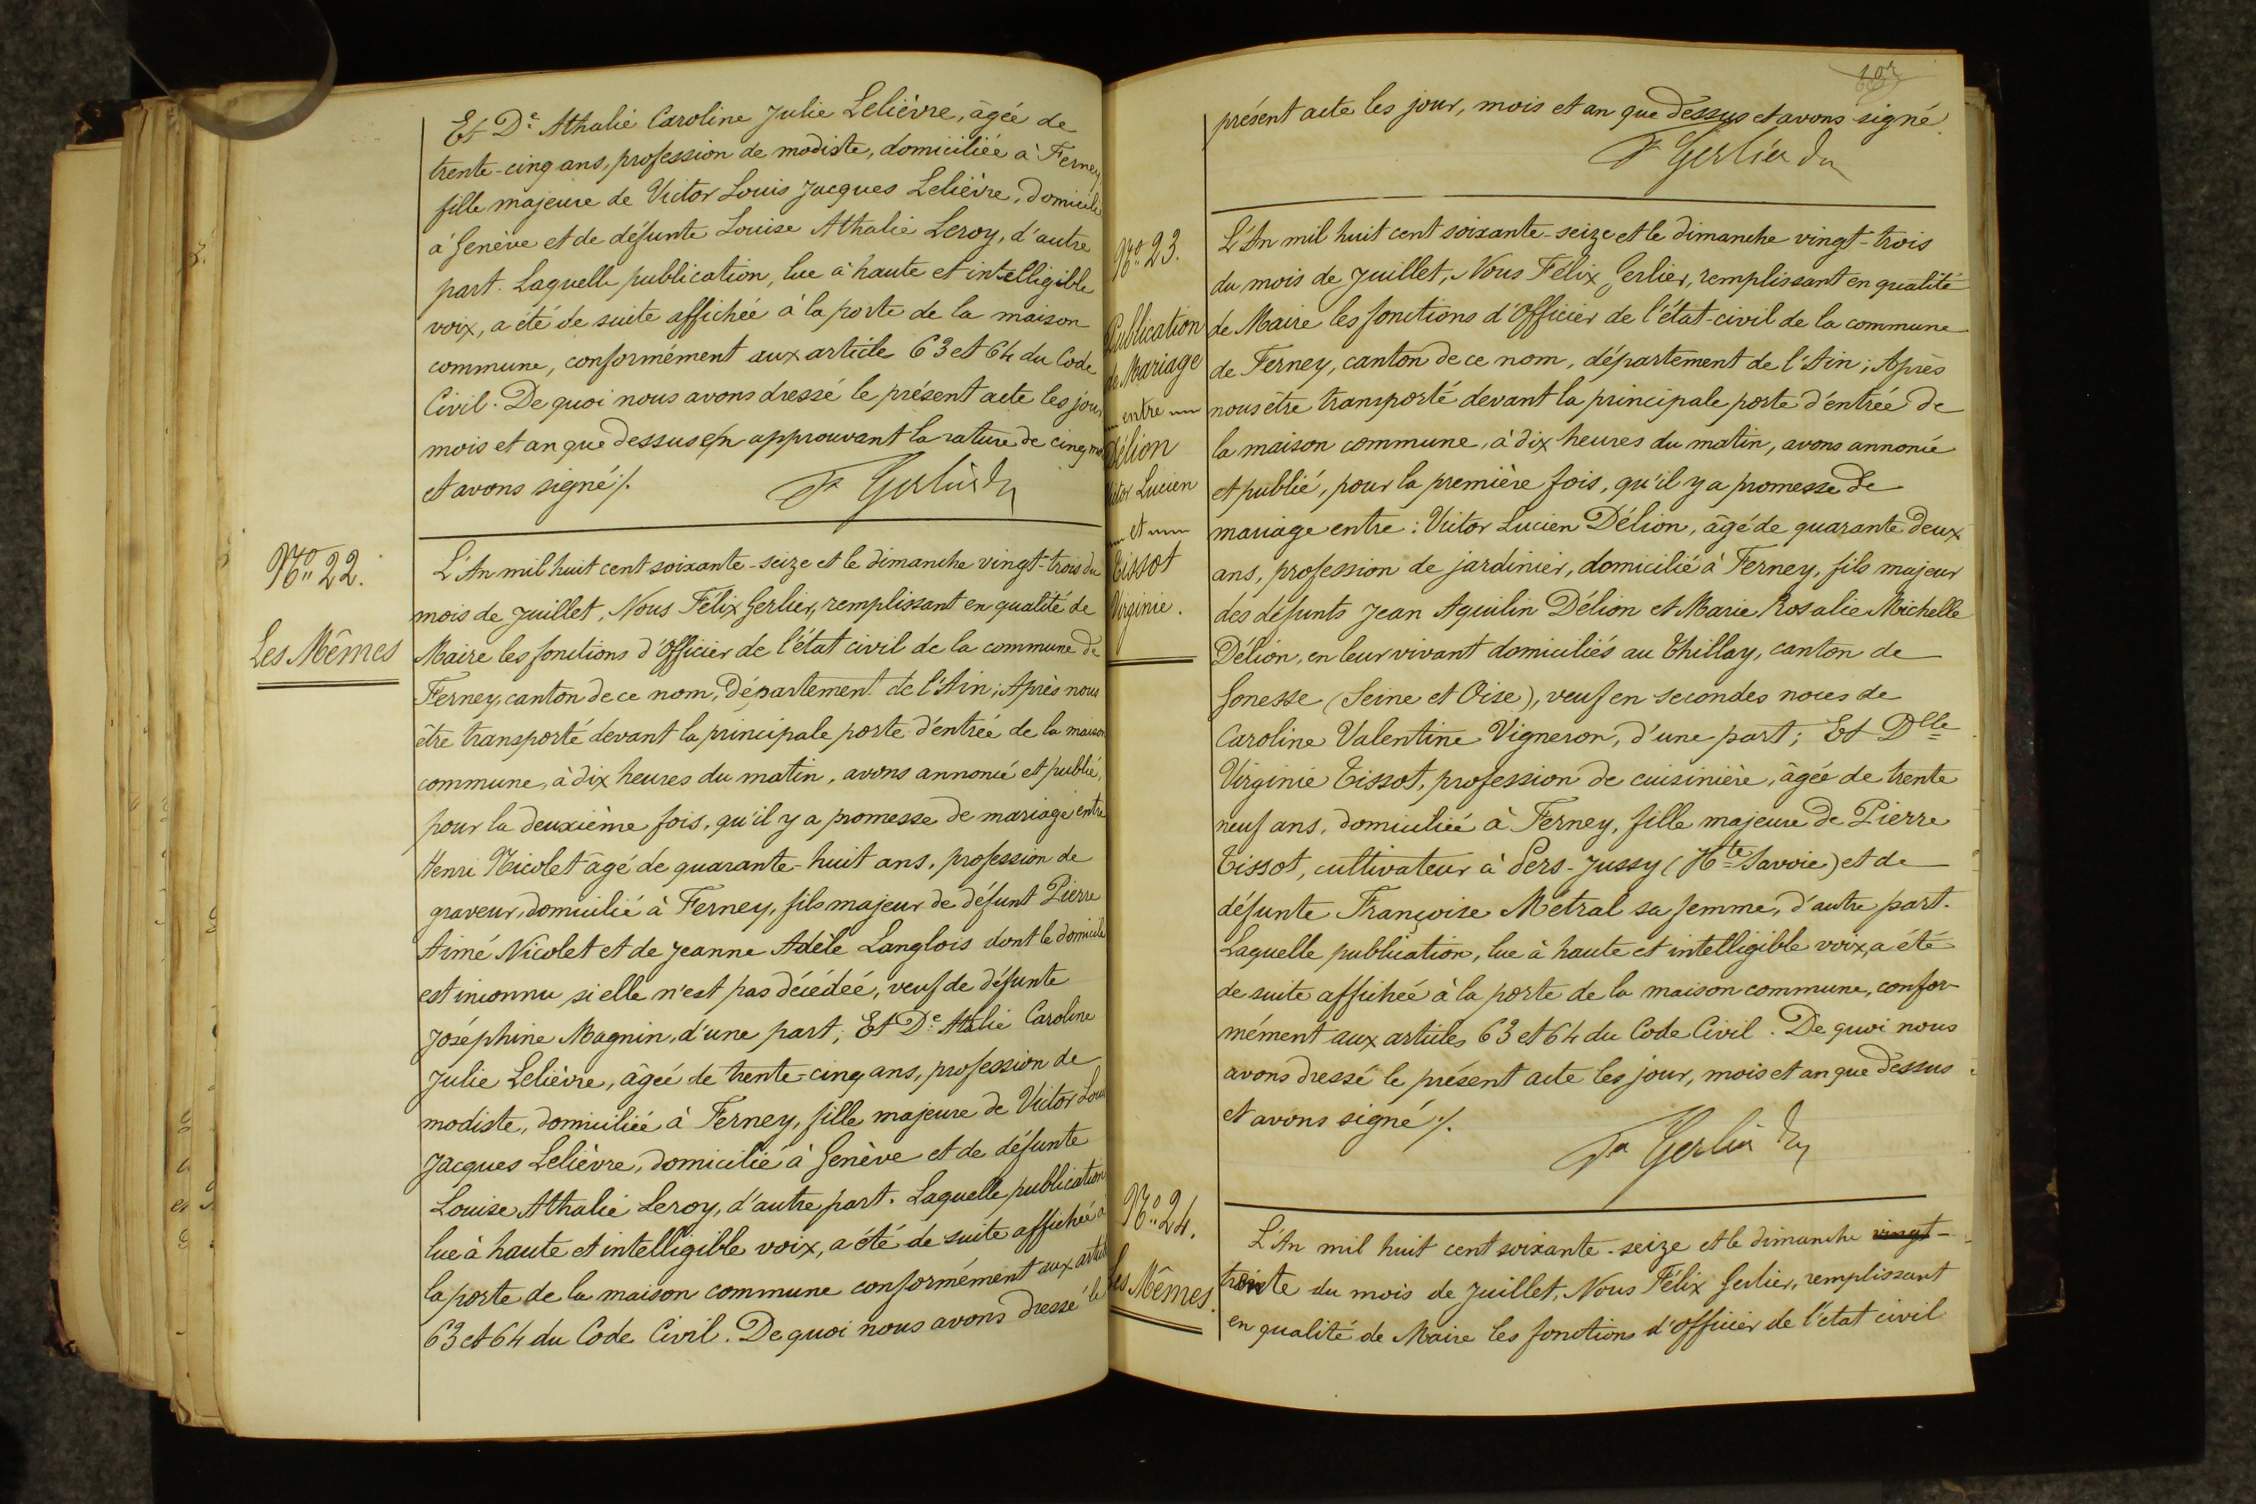 Et De Athalie Caroline Julie Lelièvre, âgée de
trente-cinq ans, profession de modiste, domiciliée à Ferney
fille majeure de Victor Louis Jacques Lelièvre, domicilié
à Genève et de défunte Louise Athalie Leroy, d'autre
part. Laquelle publication, lue à haute et intelligible
voix, a été de suite affichée à la porte de la maison
commune, conformément aux article 63 et 64 du Code
Civil. De quoi nous avons dressé le présent acte les jour
mois et an que dessus en approuvant la rature de cinq mots
et avons signé ./.
Fx Gerlier
No 22.
Les Mêmes
L'An mil huit cent soixante-seize et le dimanche vingt-trois du
mois de Juillet, Nous Félix Gerlier, remplissant en qualité de
Maire les fonctions d'Officier de l'état civil de la commune de
Ferney, canton de ce nom, Département de l'Ain; Après nous
être transporté devant la principale porte d'entrée de la maison
commune, à dix heures du matin, avons annoncé et publié,
pour la deuxième fois, qu'il y a promesse de mariage entre
Henri Nicolet âgé de quarante-huit ans, profession de
graveur, domicilié à Ferney, fils majeur de défunt Pierre
Aimé Nicolet et de Jeanne Adèle Langlois dont le domicile
est inconnu si elle n'est pas décédée, veuf de défunte
Joséphine Magnin, d'une part; Et De Atalie Caroline
Julie Lelièvre, âgée de trente-cinq ans, profession de
modiste, domiciliée à Ferney, fille majeure de Victor Louis
Jacques Lelièvre, domicilié à Genève et de défunte
Louise Athalie Leroy, d'autre part. Laquelle publication
lue à haute et intelligible voix, a été de suite affichée à
la porte de la maison commune conformément aux articles
63 et 64 du Code Civil. De quoi nous avons dressé le
présent acte les jour, mois et an que dessus et avons signé.
Fx Gerlier
No 23.
Publication
de Mariage
entre
Délion
Victor Lucien
et
Tissot
Virginie.
L'An mil huit cent soixante-seize et le dimanche vingt-trois
du mois de Juillet, Nous Félix Gerlier, remplissant en qualité
de Maire les fonctions d'Officier de l'état-civil de la commune
de Ferney, canton de ce nom, département de l'Ain; Après
nous être transporté devant la principale porte d'entrée de
la maison commune, à dix heures du matin, avons annoncé
et publié, pour la première fois, qu'il y a promesse de
mariage entre: Victor Lucien Délion, âgé de quarante deux
ans, profession de jardinier, domicilié à Ferney, fils majeur
des défunts Jean Aquilin Délion et Marie Rosalie Michelle
Délion, en leur vivant domiciliés au Thillay, canton de
Gonesse (Seine et Oise), veuf en secondes noces de
Caroline Valentine Vigneron, d'une part; Et Dlle
Virginie Tissot, profession de cuisinière, âgée de trente
neuf ans, domiciliée à Ferney, fille majeure de Pierre
Tissot, cultivateur à Pers-Jussy (Hte Savoie) et de
défunte Françoise Métral sa femme, d'autre part.
Laquelle publication, lue à haute et intelligible voix, a été
de suite affichée à la porte de la maison commune, confor-
mément aux articles 63 et 64 du Code Civil. De quoi nous
avons dressé le présent acte les jour, mois et an que dessus
et avons signé ./.
Fx Gerlier
No 24.
Les Mêmes.
L'An mil huit cent soixante-seize et le dimanche vingt-
trente du mois de Juillet, Nous Félix Gerlier, remplissant
en qualité de Maire les fonctions d'officier de l'état civil